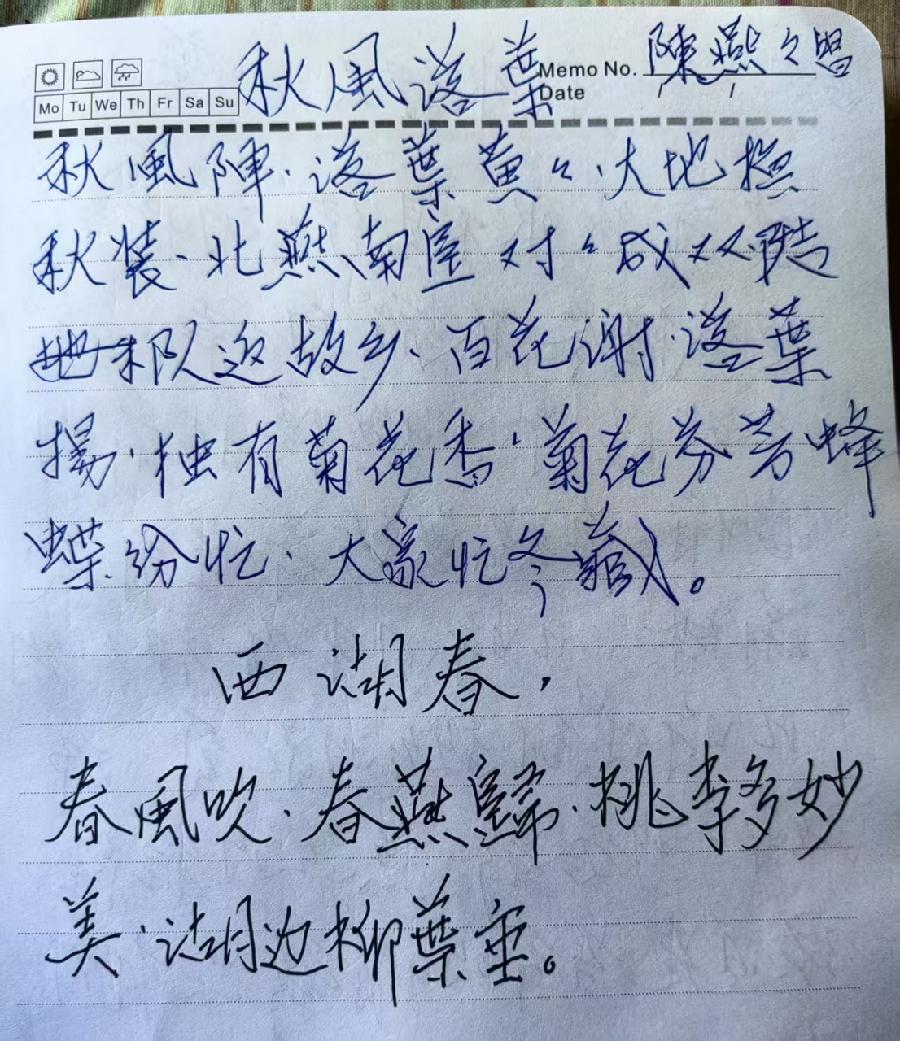 秋風落葉 Memo No. 陳燕之盟
Mo Tu We Th Fr Sa Su Date / /
秋風陣·落葉黄々·大地换
秋装·北燕南宦对々成双·陆
隊返故乡·百花谢·落葉
揚·独有菊花香·菊花芬芳蜂
蝶纷忙·大家忙冬藏。
西湖春,
春風吹·春燕歸·桃李多妙
美·湖边柳葉垂。